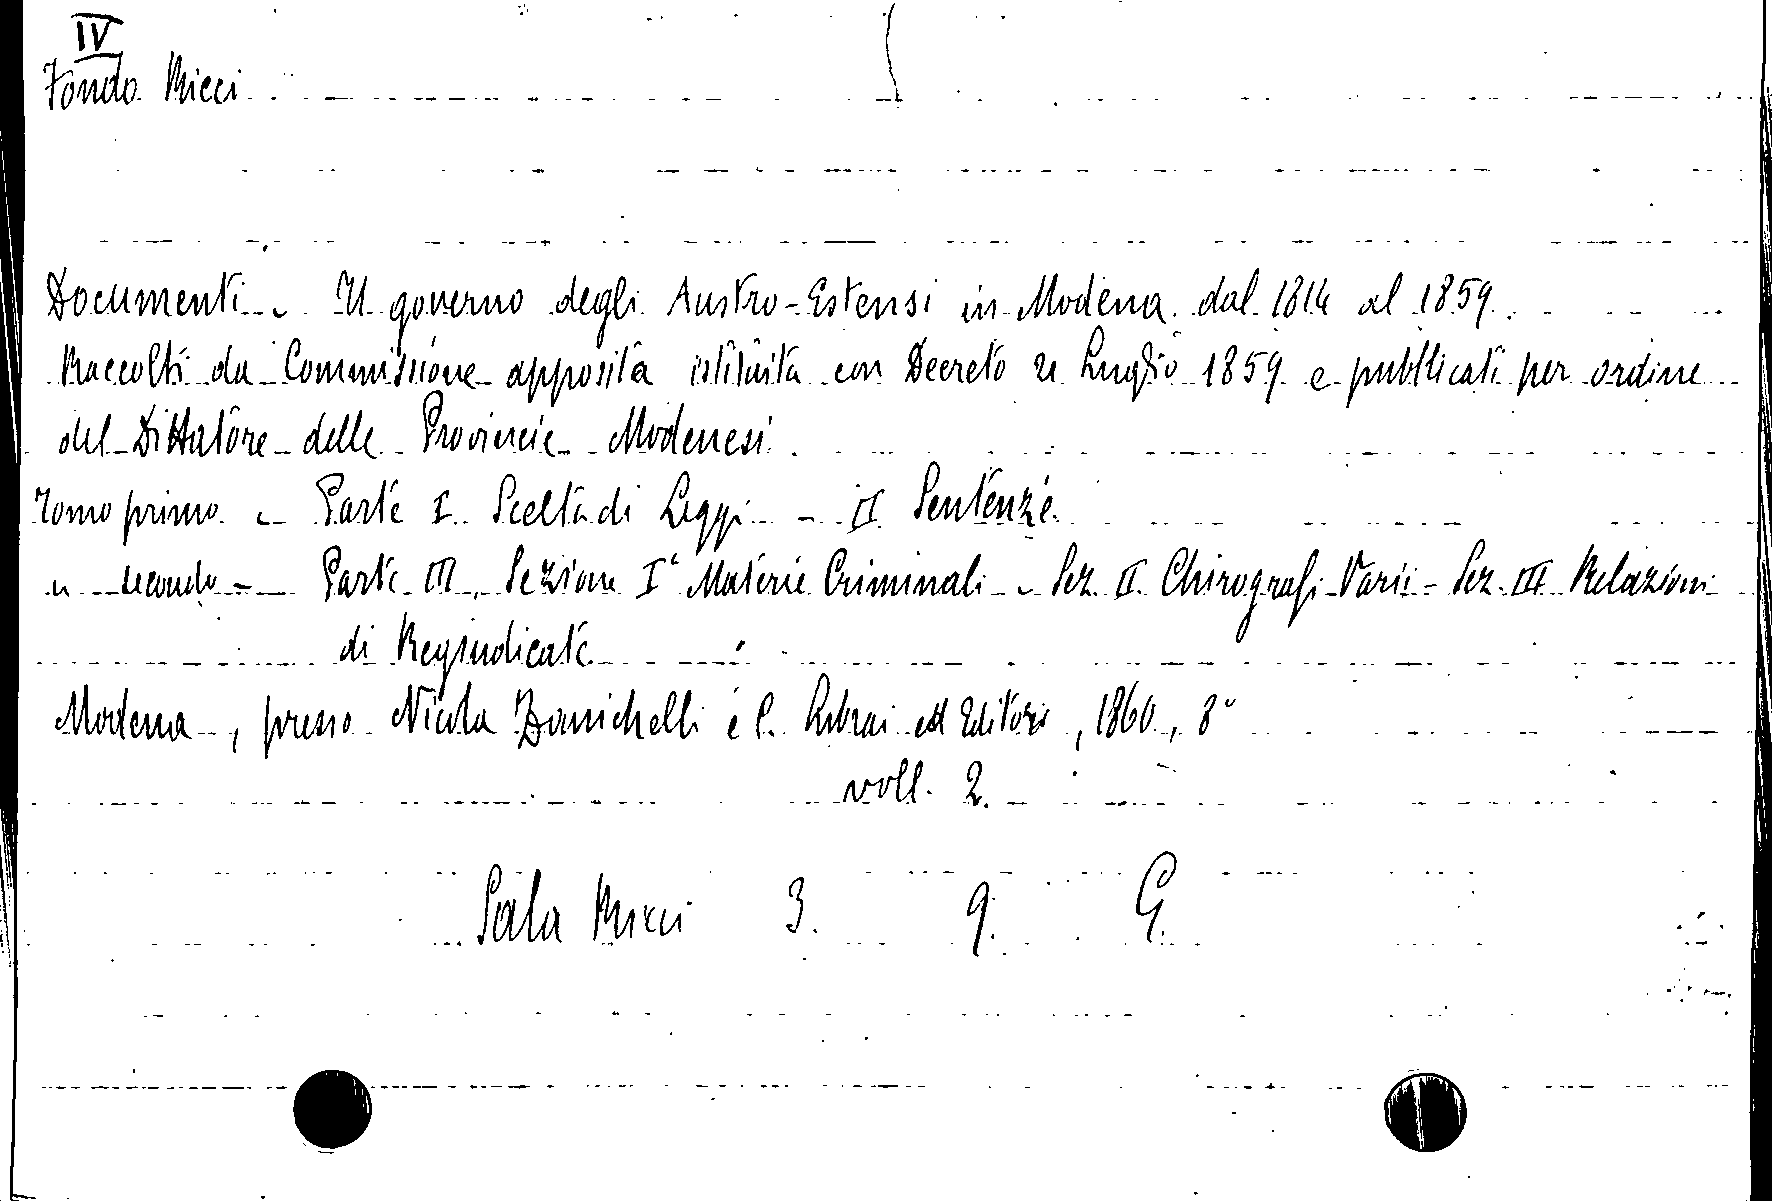 IV
Fondo Ricci
Documenti - Il governo degli Austro-Estensi in Modena dal 1814 al 1859.
Raccolti da Commissione apposita istituita con Decreto 21 Luglio 1859 e pubblicati per ordine
del Dittatore delle Provincie Modenesi.
Tomo primo - Parte I. Scelta di Leggi - II Sentenze.
" secondo - Parte III. Sezione Iª Materie Criminali - Sez. II. Chirografi Varii - Sez. III Relazioni
di Regiudicate
Modena, presso Nicola Zanichelli e C. Librai ed Editori, 1860, 8°
voll. 2.
Sala Ricci 3. 9. G.